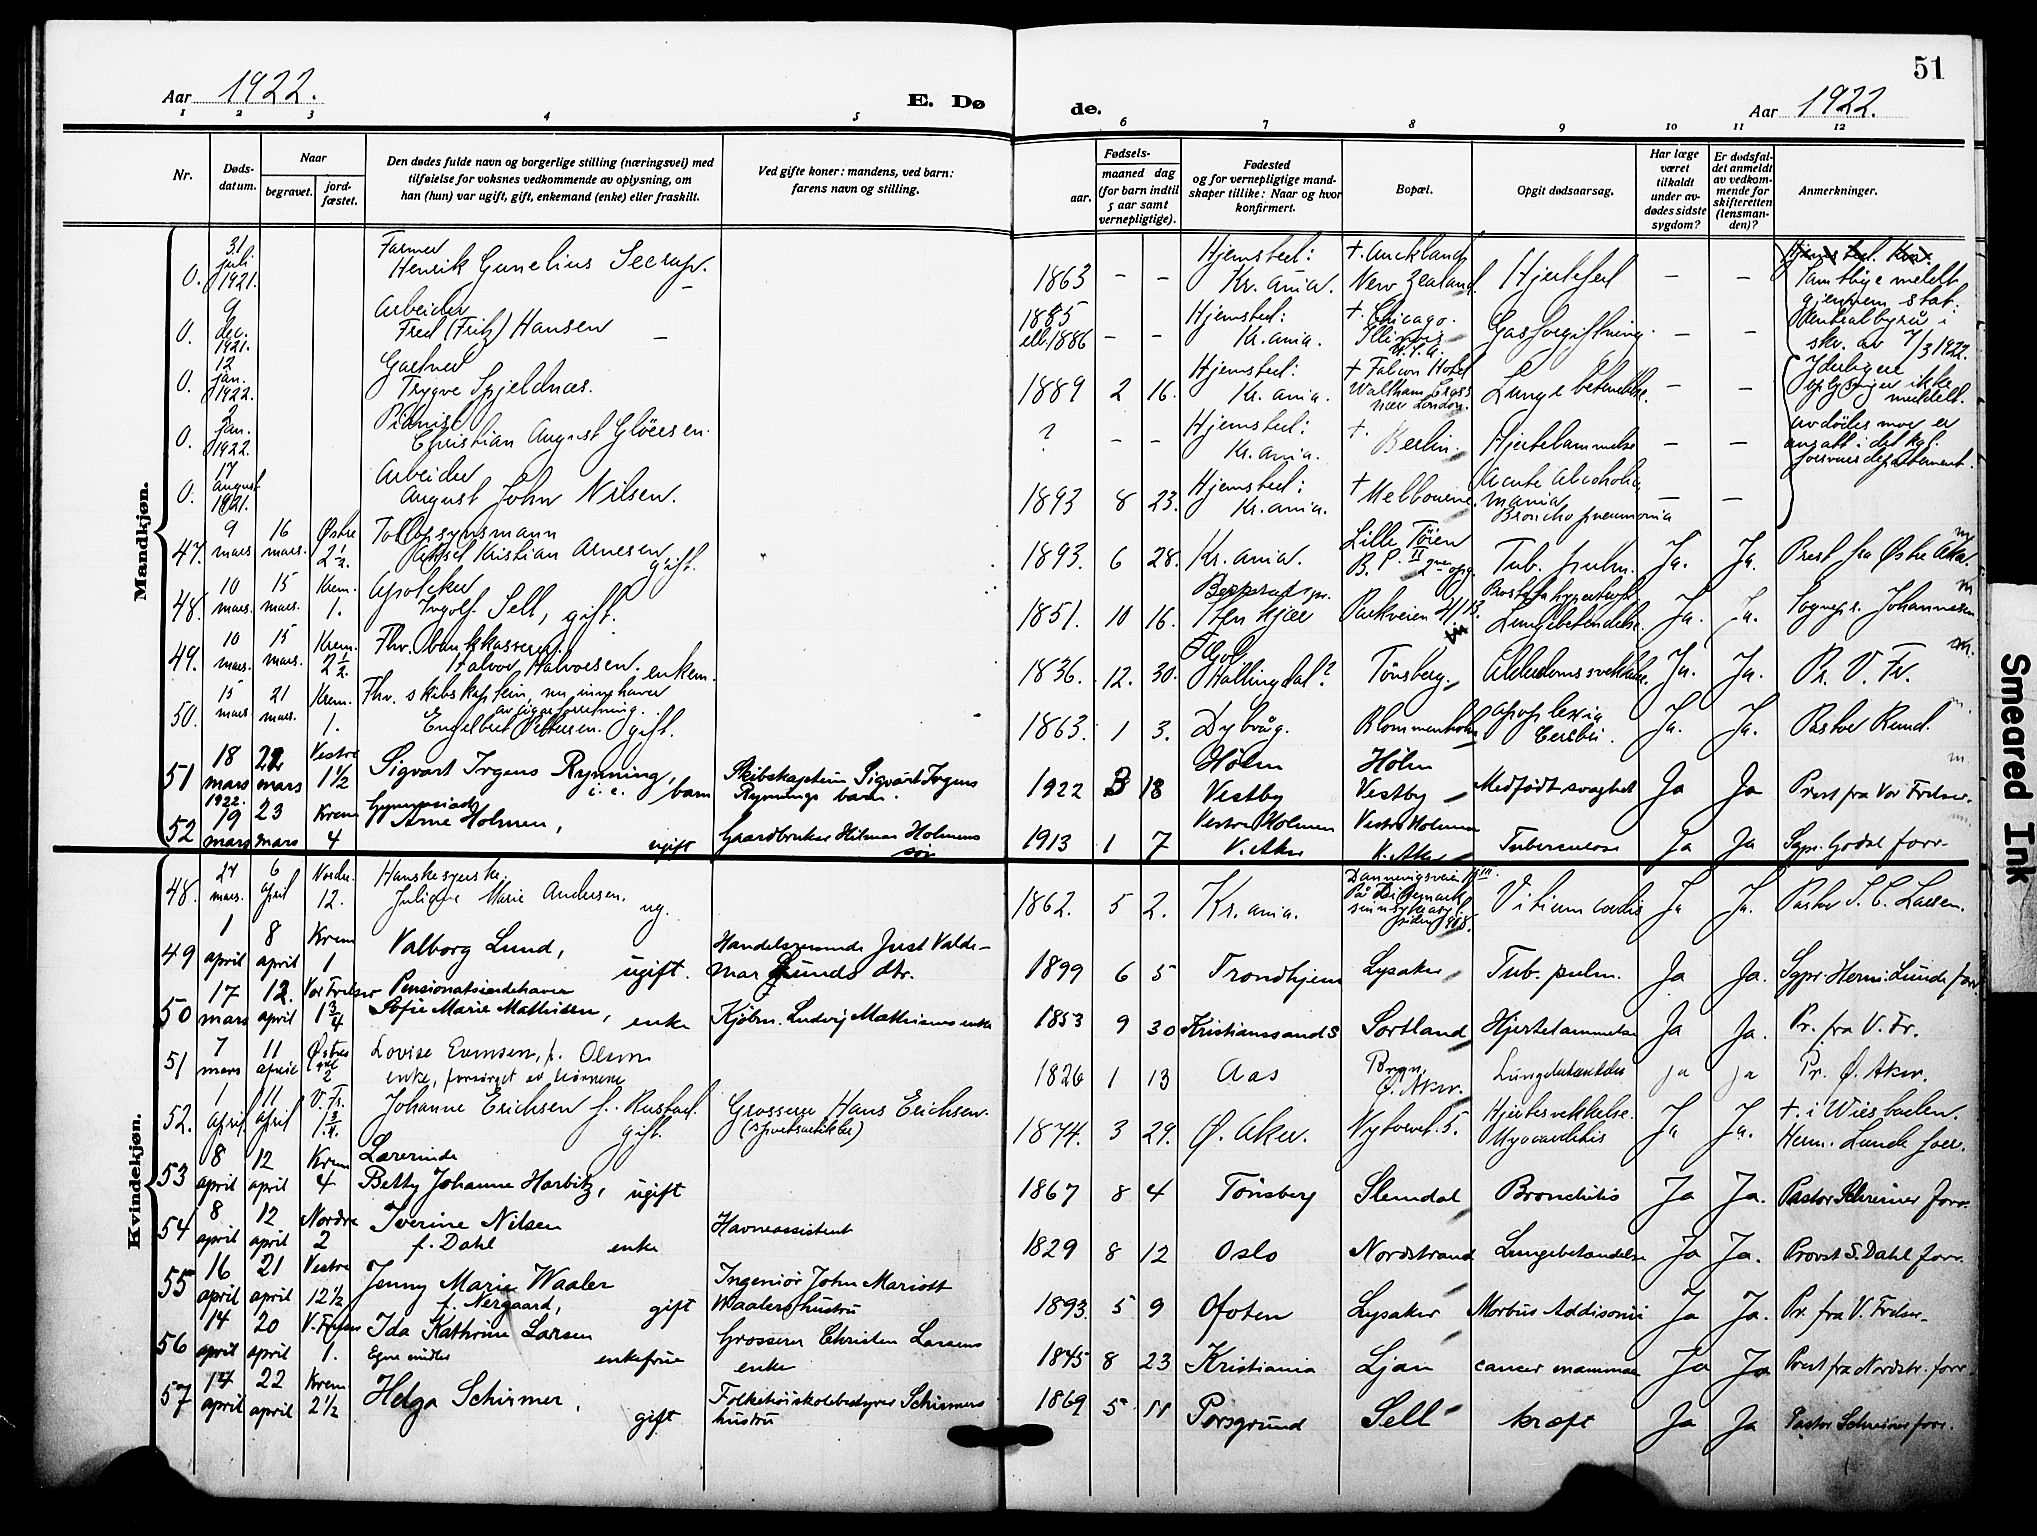 51
Aar 1922.
E. Dø
de.
Aar 1922.
1 2 3 4 5 6 7 8 9 10 11 12
Nr.
Døds-
datum.
Naar
begravet.
jord-
fæstet.
Den dødes fulde navn og borgerlige stilling (næringsvei) med
tilføielse for voksnes vedkommende av oplysning, om
han (hun) var ugift, gift, enkemand (enke) eller fraskilt.
Ved gifte koner: mandens, ved barn:
farens navn og stilling.
Fødsels-
aar.
maaned dag
(for barn indtil
5 aar samt
vernepligtige).
Fødested
og for vernepligtige mand-
skaper tillike: Naar og hvor
konfirmert.
Bopæl.
Opgit dødsaarsag.
Har læge
været
tilkaldt
under av-
dødes sidste
sygdom?
Er dødsfal-
det anmeldt
av vedkom-
mende for
skifteretten
(lensman-
den)?
Anmerkninger.
Mandkjøn.
0. 31 juli 1921. Farmer
Henrik Gunelius Seerup. — 1863 — — Hjemsted: Kr.ania. + Auckland, New Zealand. Hjertefeil — —
Samtlige meldt
gjennem stat.
Centralbyrå i
skr. av 7/3 1922.
0. 9 dec. 1921. Arbeider
Fred (Fritz) Hansen — 1885 ell. 1886 — — Hjemsted: Kr.ania. + Chicago. Illinois U.S.A. Gasforgiftning. — —
Yderligere
oplysninger ikke
meddelt.
0. 12 jan. 1922. Gartner
Trygve Spjeldnæs. 1889 2 16. Hjemsted: Kr.ania. + Falcon Hotel Waltham Cross nær London. Lungebetændelse. — —
0. 2 jan. 1922. Pianist
Christian August Glöersen. ? — — Hjemsted: Kr.ania. + Berlin. Hjertelammelse — —
Avdødes mor er
ansatt i det kgl.
forsvarsdepartement.
0. 17 august 1921. Arbeider
August John Nilsen. 1893 8 23. Hjemsted: Kr.ania. + Melbourne. Acute Alcoholic mania Broncho pneumonia — —
47. 9 mars 16 mars. Østre 2 1/2. Toldopsynsmann
Aksel Kristian Arnesen, gift. 1893. 6 28. Kr.ania. Lille Tøien B. P. II Tub. pulm. Ja. Ja. Prest fra Østre Aker.
48. 10 mars. 15 mars. Krem. 1. Apoteker
Ingolf Sell, gift. 1851. 10 16. Stenkjær Parkveien Lungebetændelse. Ja. Ja. Sognepr. Johannesen
49. 10 mars. 15 mars. Krem. 2 1/2. Fhv. bankkasserer
Halvor Halvorsen. enkem. 1836. 12. 30. Hallingdal? Tønsberg. Alderdomssvekkelse. Ja. Ja. Pr. V. Fr.
50. 15 mars 21 mars. Krem. 1. Fhv. skibskaptein, nu innehaver
av cigarforretning.
Engelbret Pettersen. gift. 1863. 1 3. Dybvåg. Blommenholm apoplexia cerebri. Ja. Ja. Pastor Rund.
51 18 mars 1922. 22 mars Vestre 1 1/2 Sigvart Irgens Rynning, barn Skibskaptein Sigvart Irgens
Rynnings barn. 1922 3 18 Hølen Vestby Hølen Vestby Medfødt svaghet Ja Ja Prest fra Vor Frelser.
52 19 mars 23 mars Krem 4 Gymnasiast
Arne Holmen, ugift Gaardbruker Hilmar Holmens
søn 1913 1 7 Vestre Holmen V. Aker Vestre Holmen V. Aker Tuberculose Ja Ja Sgpr. Godal forr.
Kvindekjøn.
48. 27 mars. 6 april Nordre. 12. Hanskesyerske.
Juliane Marie Andersen. ug. 1862. 5 2. Kr.ania. Dannevigsveien Vitium cordis Ja Ja. Pastor S. C. Larsen.
49 1 april 8 april Krem 1 Valborg Lund, ugift. Handelsreisende Just Valde-
mar Lunds dtr. 1899 6 5 Trondhjem Lysaker Tub. pulm. Ja Ja. Sgpr. Herm. Lunde forr.
50 17 mars 12. april Vor Frelser 1 3/4 Pensionatsindehaver
Sofie Marie Mathisen, enke Kjøbm. Ludvig Mathisens enke 1853 9 30 Kristianssand S Sortland Hjertelammelse Ja Ja. Pr. fra V. Fr.
51 7 mars 11 april Østre 2 Lovise Evensen, f. Olsen
enke, forsørget av børnene 1826 1 13 Aas Ø. Aker. Lungebetændelse ja ja Pr. Ø. Aker.
52. 1 april 11 april V. Fr. 1 3/4. Johanne Erichsen f. Rustad.
gift. Grosserer Hans Erichsen.
(sportsartikler) 1874. 3 29. Ø. Aker. Nytorvet 5. Hjertesvekkelse. Myocarditis Ja Ja. +. i Wiesbaden.
Herm. Lunde forr.
53 8 april 12 april Krem 4 Lærerinde
Betty Johanne Harbitz, ugift 1867 8 4 Tønsberg Slemdal Bronchitis Ja Ja. Pastor Schreiner forr.
54 8 april 12 april Nordre 2 Iverine Nilsen
f. Dahl enke Havneassistent 1829 8 12 Oslo Nordstrand Lungebetændelse Ja Ja. Provst S. Dahl forr.
55 16 april 21 april Vestre 12 1/2 Jenny Marie Waaler
f. Nergaard, gift Ingeniør John Mariott
Waalers hustru 1893. 5 9 Ofoten Lysaker Morbus Addisonii Ja Ja. Pr. fra V. Frelser.
56 14 april 20 april V. Frelser 1. Ida Kathrine Larsen
Egne midler enkefrue Grosserer Christen Larsens
enke 1845 8 23 Kristiania Ljan cancer mammae Ja Ja Prest fra Nordstr. forr.
57 14 april 22 april Krem 2 1/2 Helga Schirmer, gift Folkehøiskolebestyrer Schirmers
hustru 1869 5 11 Porsgrund Sell kræft Ja Ja Pastor Schreiner forr.
Smeared Ink